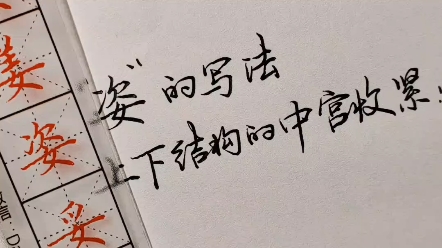 "姿"的写法
上下结构的中宫收紧
姿